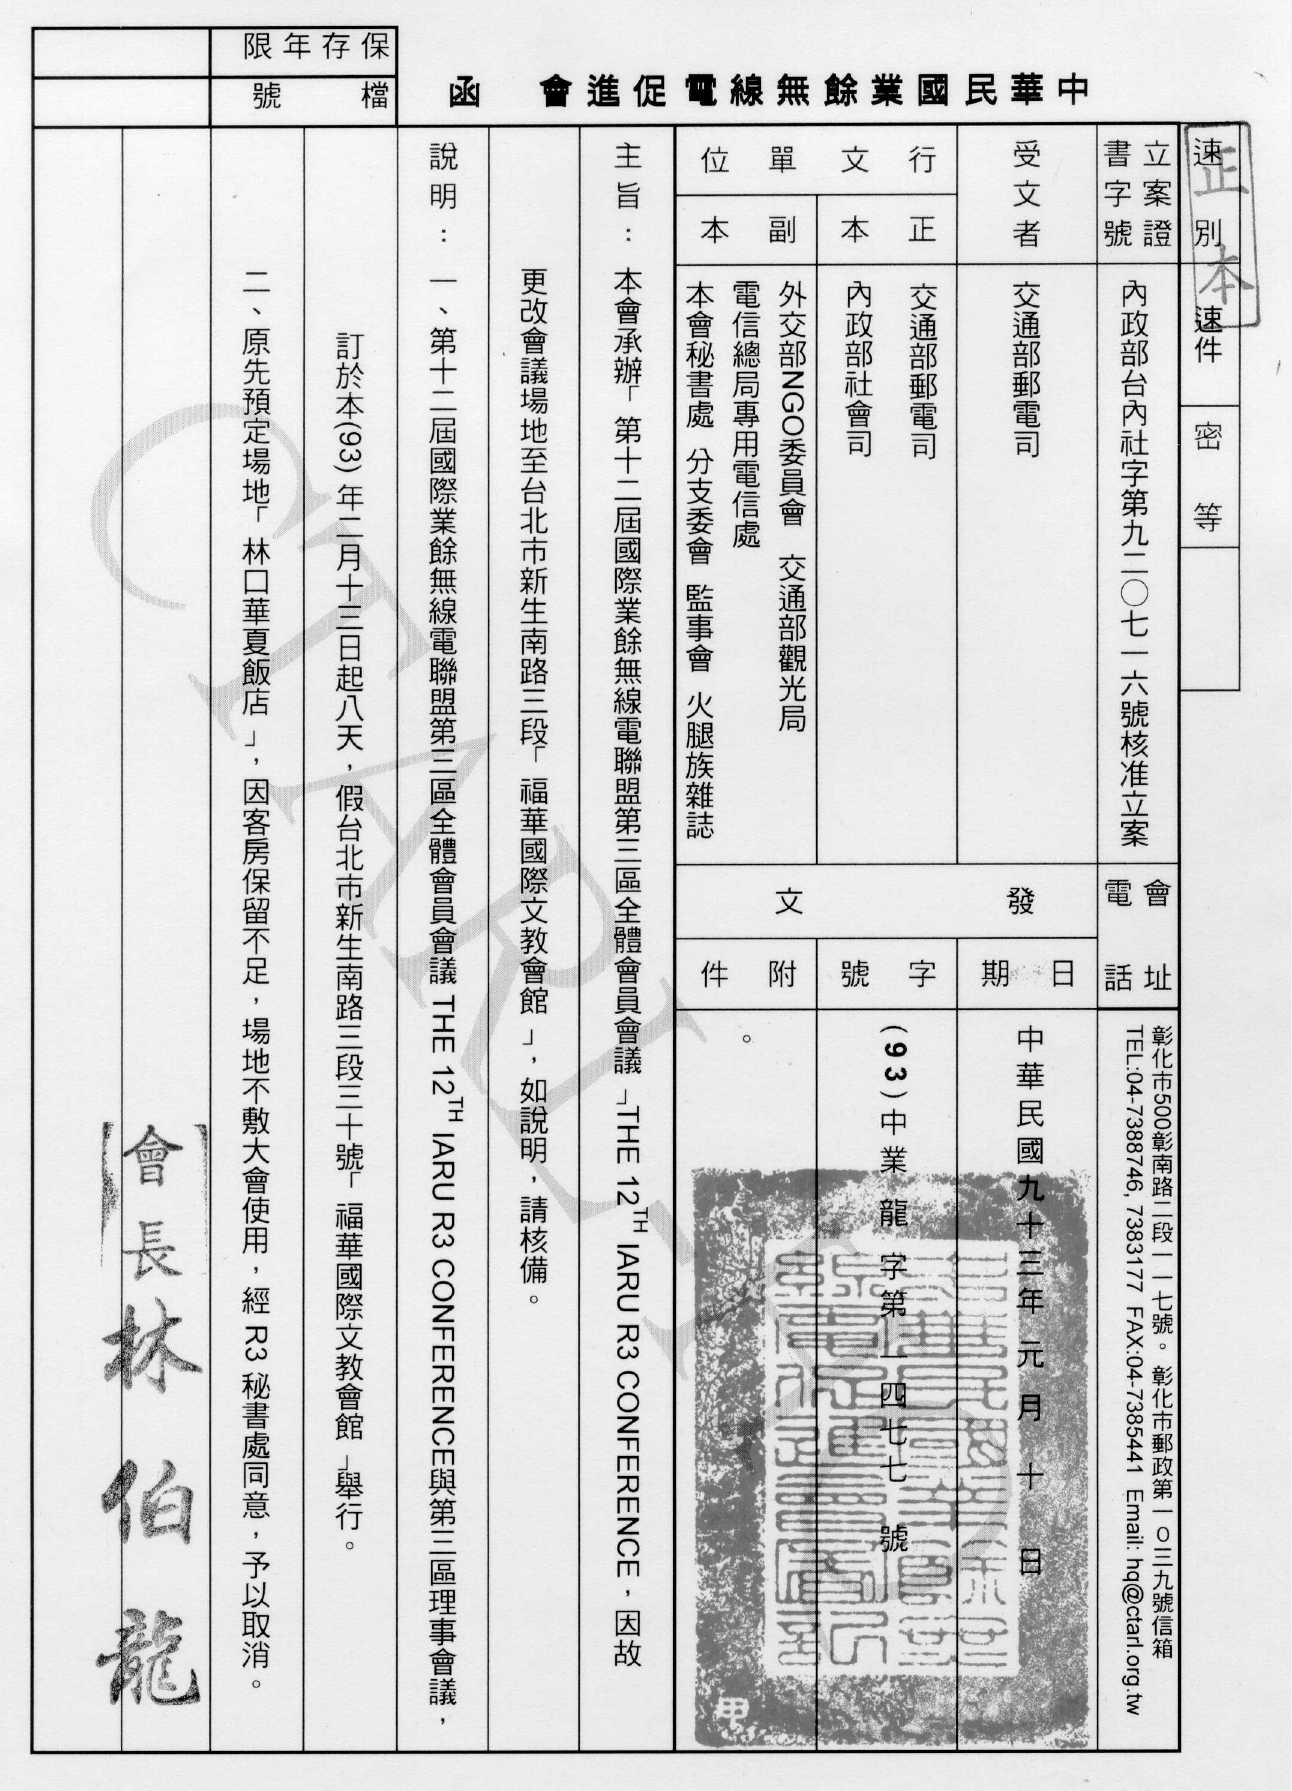 中華民國業餘無線電促進會　函
保存年限
檔號
正本
速別
速件
密等
立案證書字號
內政部台內社字第九二〇七一六號核准立案
會址電話
彰化市500彰南路二段一一七號。彰化市郵政第一０三九號信箱
TEL:04-7388746, 7383177 FAX:04-7385441 Email: hq@ctarl.org.tw
受文者
交通部郵電司
行文單位
正本
交通部郵電司
內政部社會司
副本
外交部NGO委員會　交通部觀光局
電信總局專用電信處
本會秘書處　分支委會　監事會　火腿族雜誌
發文
日期
中華民國九十三年元月十日
字號
(93)中業龍字第一四七七號
附件
。
主旨：本會承辦「第十二屆國際業餘無線電聯盟第三區全體會員會議」THE 12TH IARU R3 CONFERENCE，因故
更改會議場地至台北市新生南路三段「福華國際文教會館」，如說明，請核備。
說明：一、第十二屆國際業餘無線電聯盟第三區全體會員會議 THE 12TH IARU R3 CONFERENCE與第三區理事會議，
訂於本(93)年二月十三日起八天，假台北市新生南路三段三十號「福華國際文教會館」舉行。
二、原先預定場地「林口華夏飯店」，因客房保留不足，場地不敷大會使用，經 R3 秘書處同意，予以取消。
會長林伯龍
甲